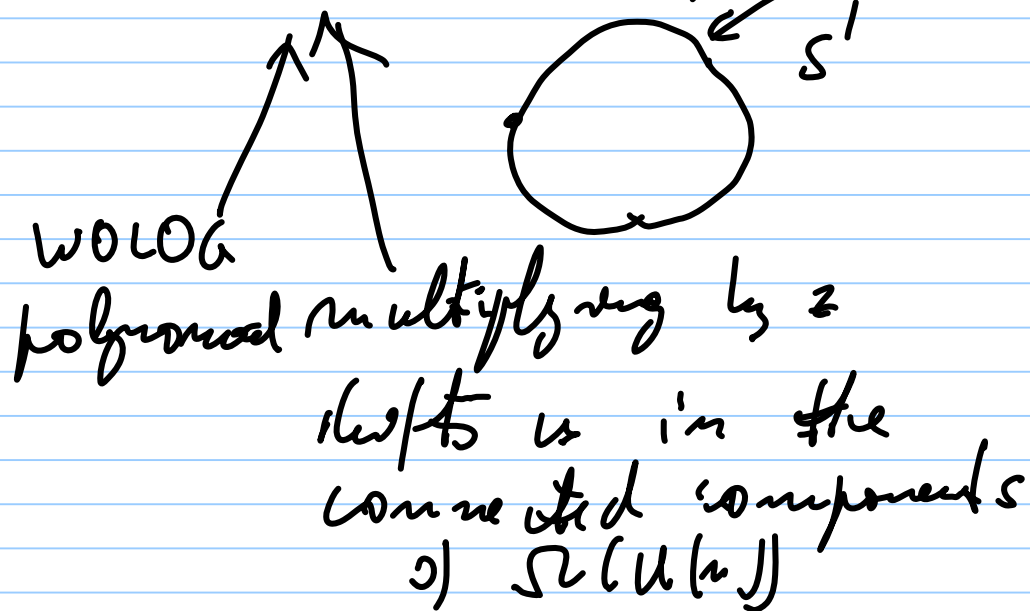 S¹
WOLOG
polynomial multiplying by z
shifts us in the
connected components
of Ω(U(n))